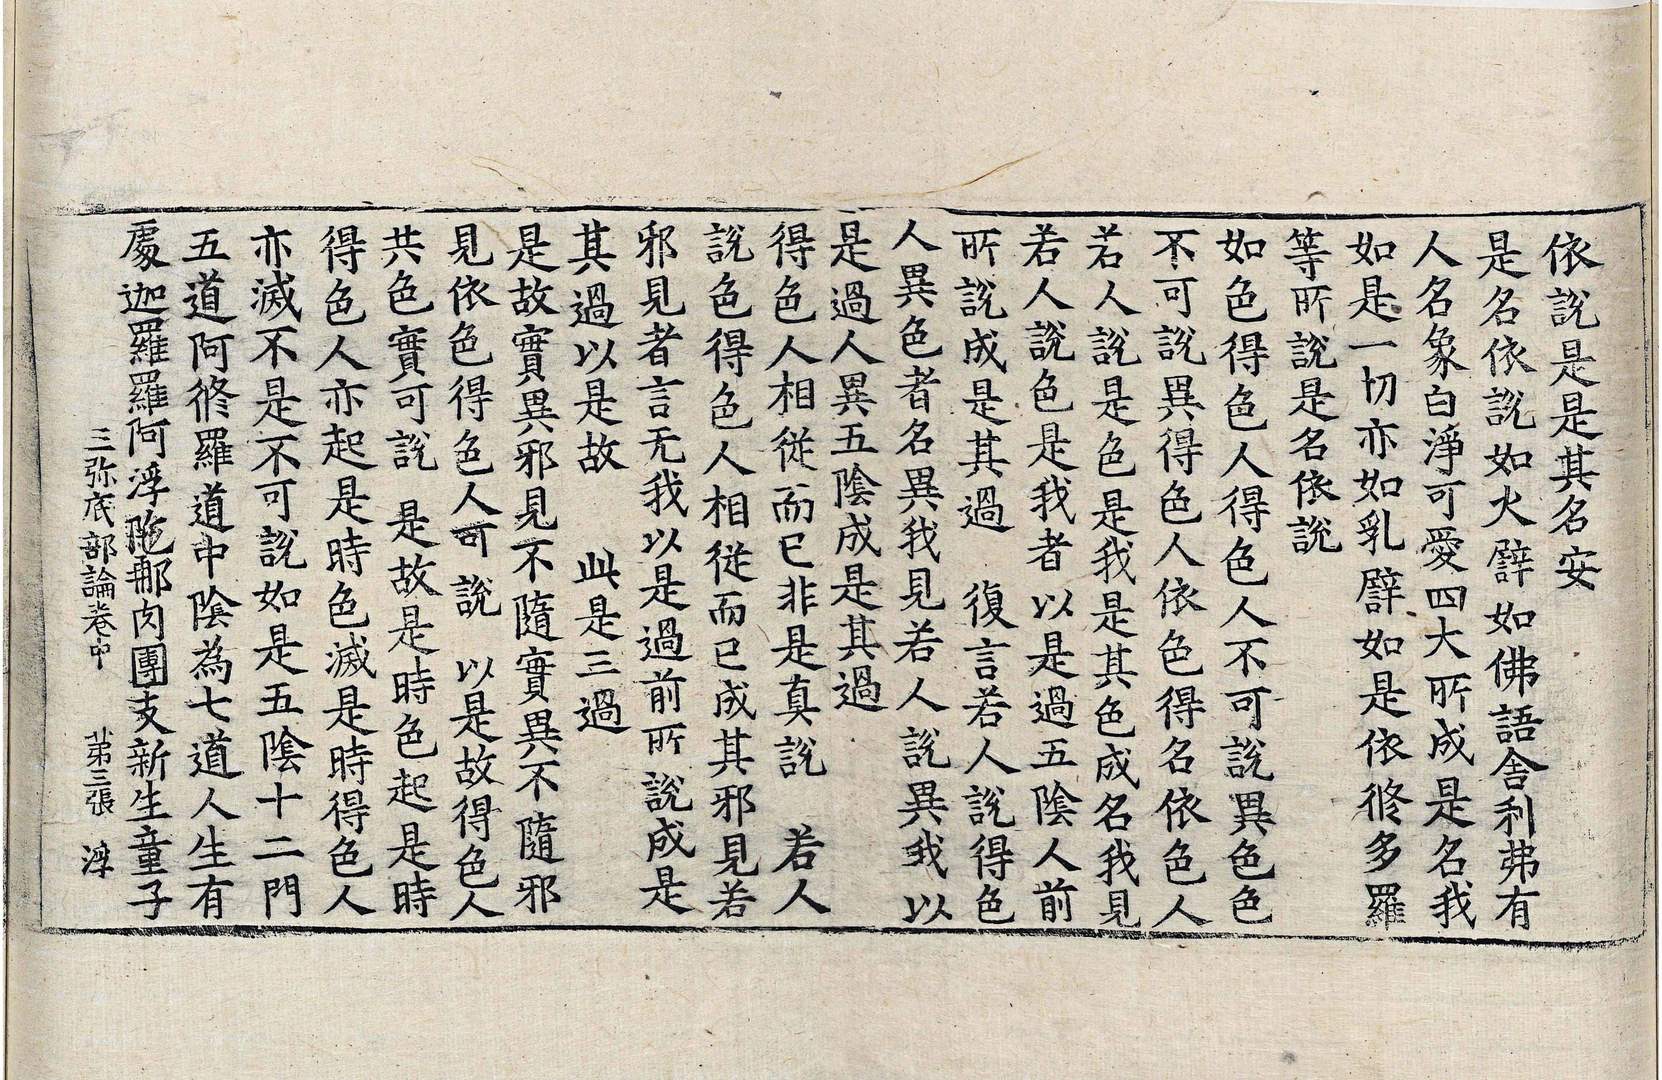 依說是是其名安
是名依說如火譬如佛語舍利弗有
人名象白淨可愛四大所成是名我
如是一切亦如乳譬如是依修多羅
等所說是名依說
如色得色人得色人不可說異色色
不可說異得色人依色得名依色人
若人說是色是我是其色成名我見
若人說色是我者以是過五陰人前
所說成是其過　復言若人說得色
人異色者名異我見若人說異我以
是過人異五陰成是其過
得色人相從而已非是真說　若人
說色得色人相從而已成其邪見若
邪見者言无我以是過前所說成是
其過以是故　此是三過
是故實異邪見不隨實異不隨邪
見依色得色人可說　以是故得色人
共色實可說　是故是時色起是時
得色人亦起是時色滅是時得色人
亦滅不是不可說如是五陰十二門
五道阿修羅道中陰為七道人生有
處迦羅羅阿浮陁那肉團支新生童子
三弥底部論卷中　第三張　浮